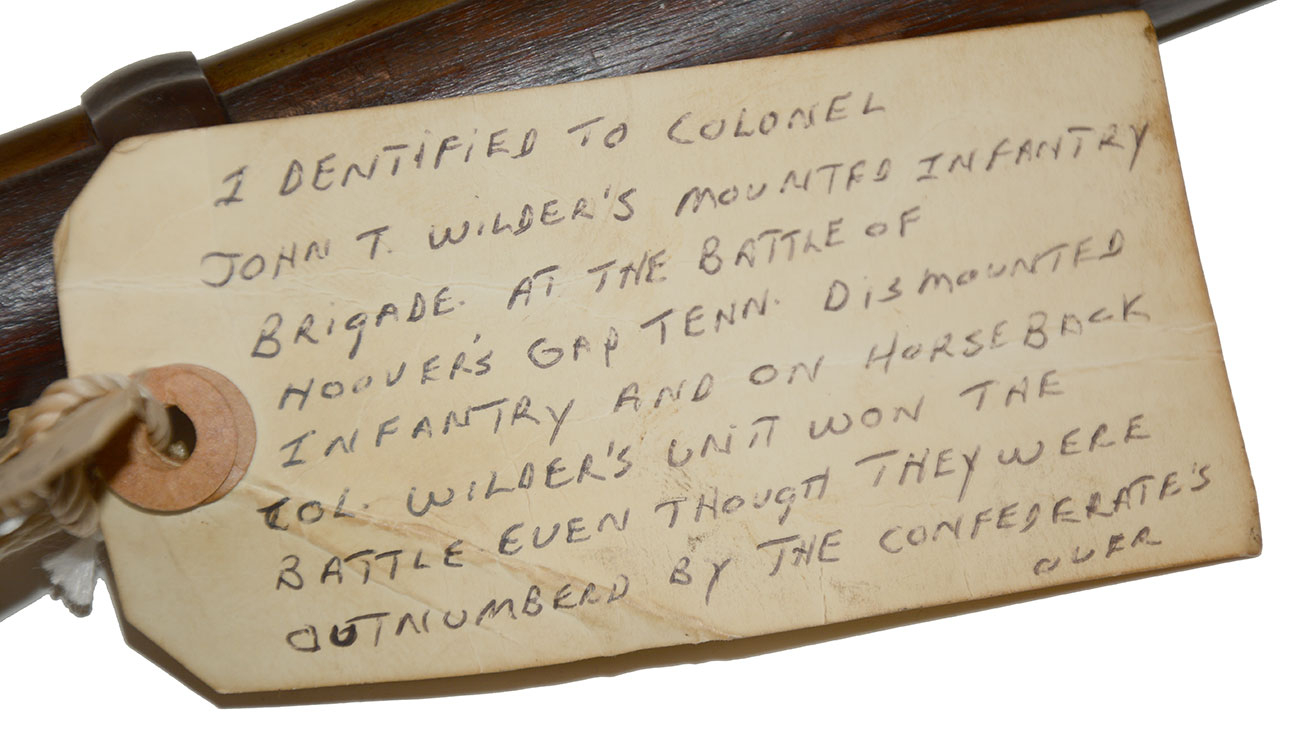 I DENTIFIED TO COLONEL
JOHN T. WILDER'S MOUNTED INFANTRY
BRIGADE. AT THE BATTLE OF
HOOVER'S GAP TENN. DISMOUNTED
INFANTRY AND ON HORSEBACK
COL. WILDER'S UNIT WON THE
BATTLE EVEN THOUGH THEY WERE
OUTNUMBERD BY THE CONFEDERATE'S
OVER